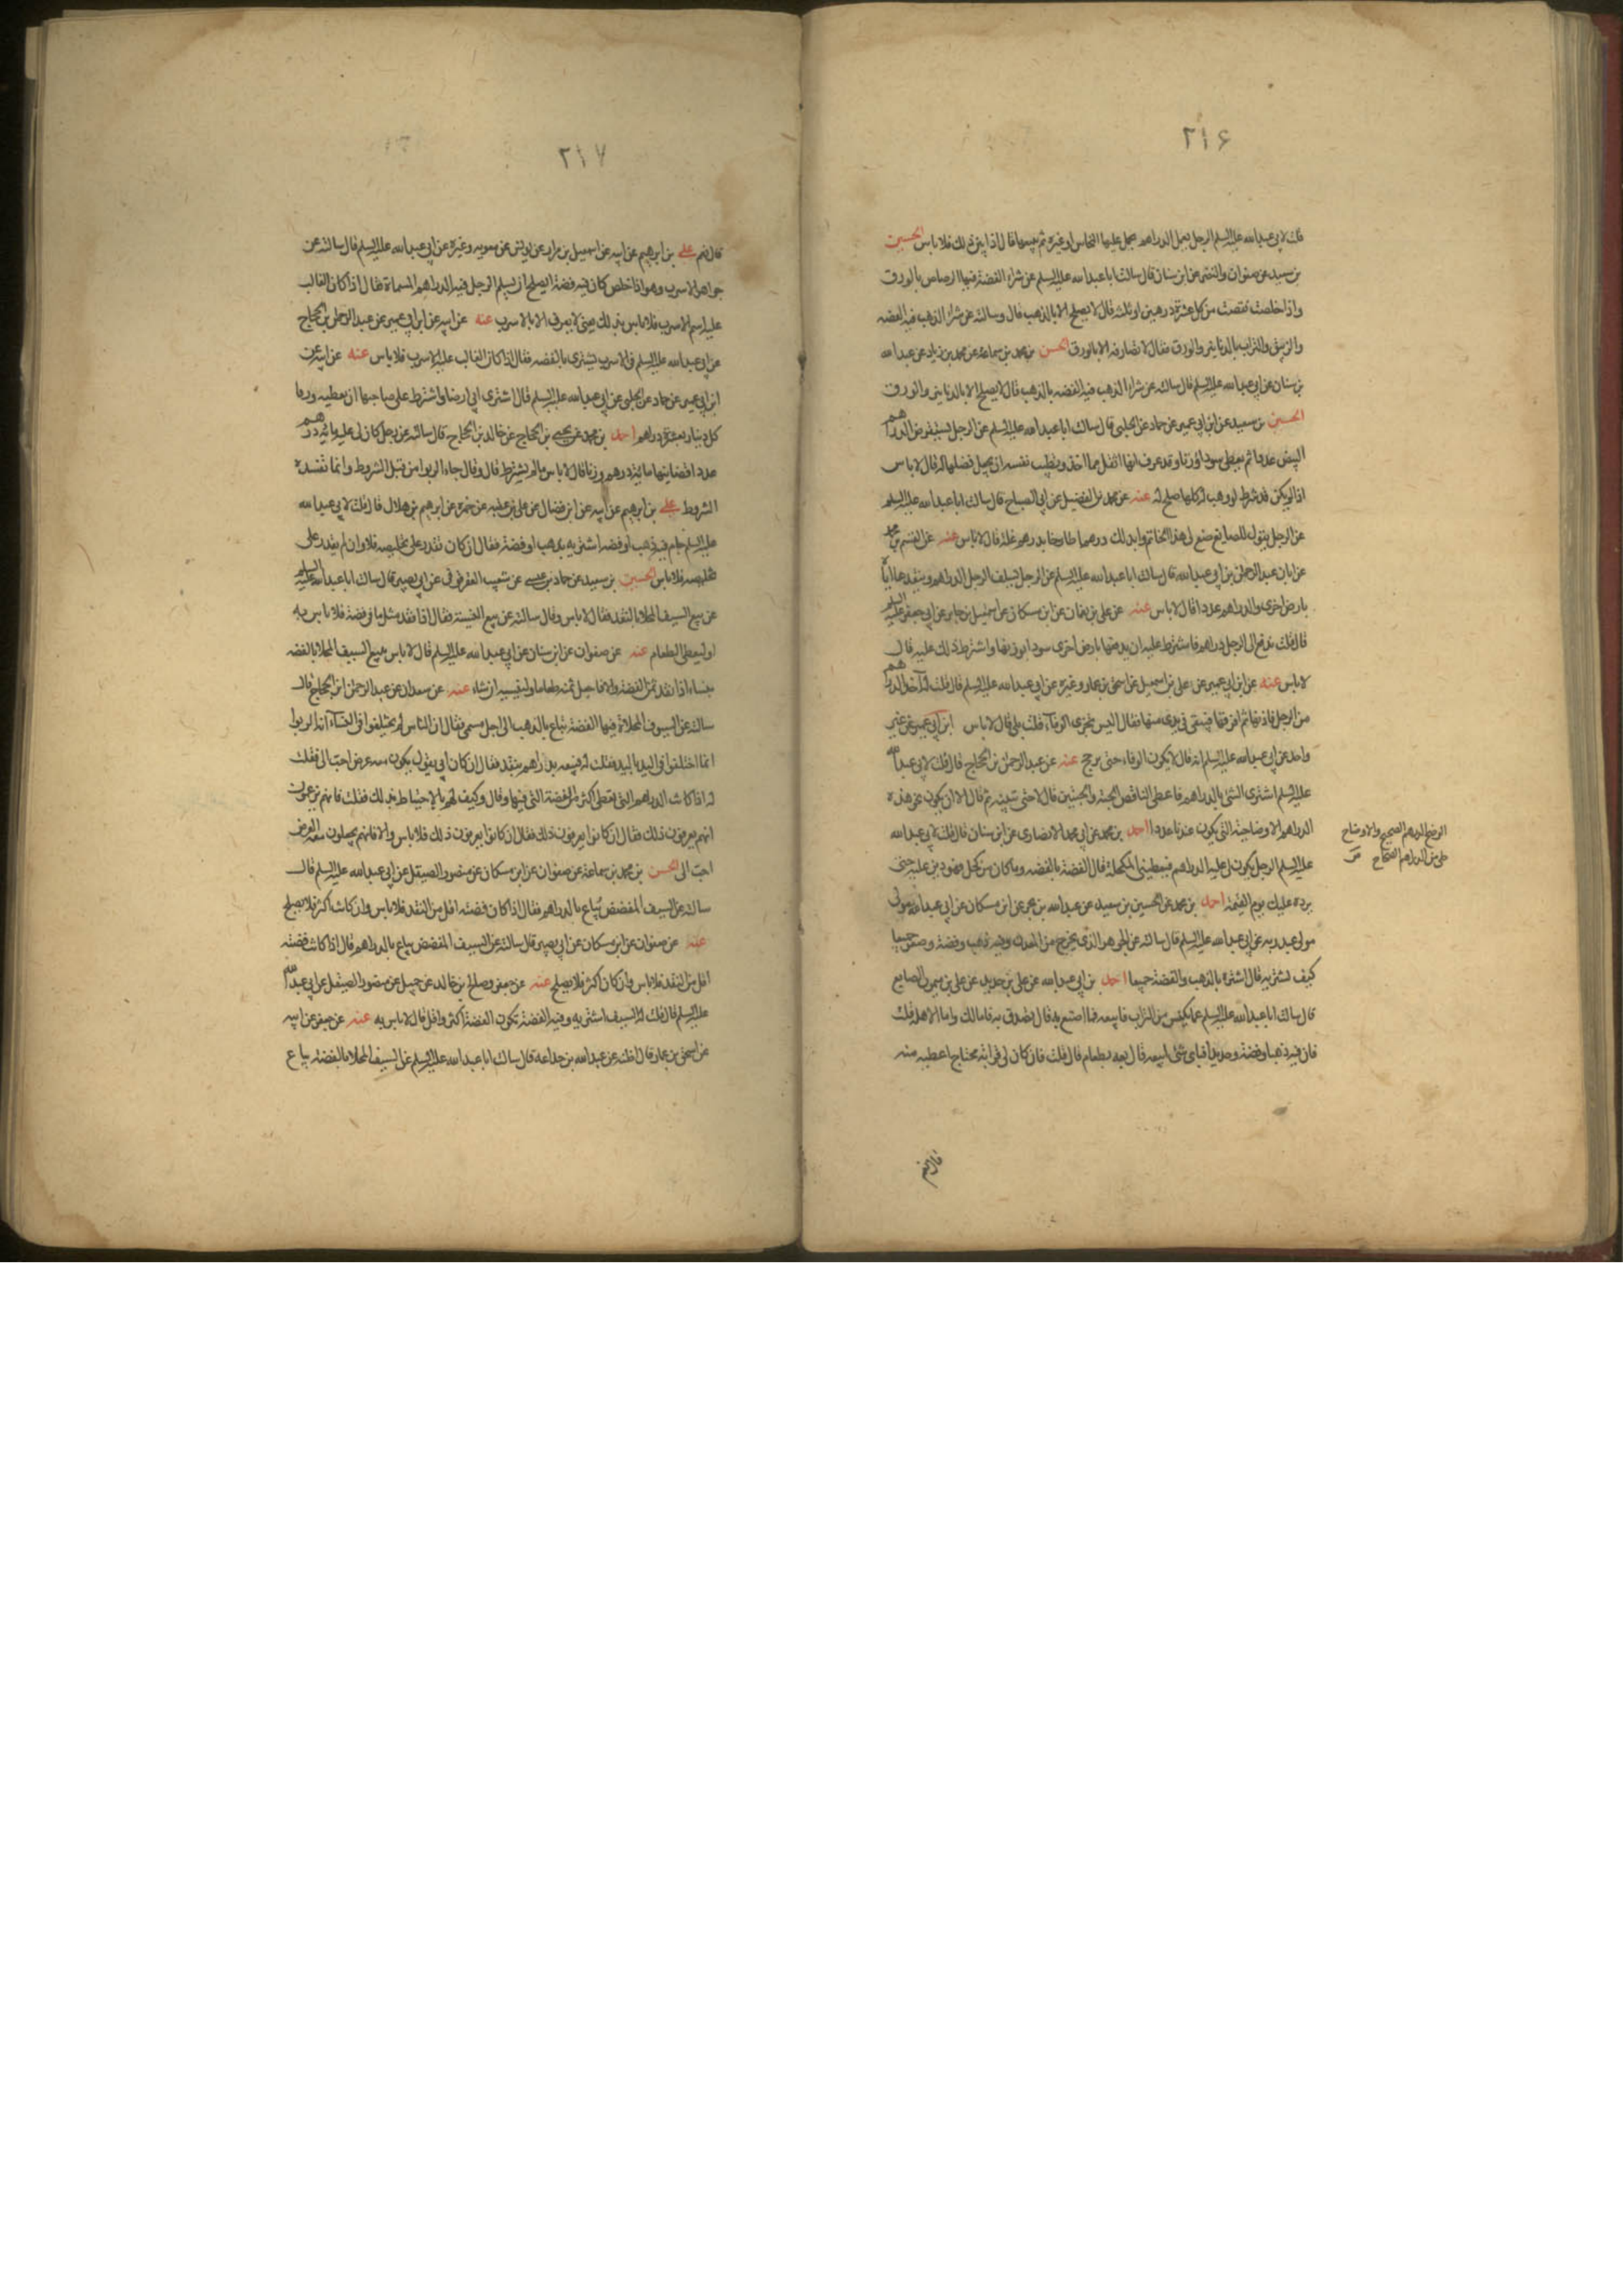 ۲۱۶
قلت لابي عبد الله عليه السلم الرجل يعمل الدراهم يحمل عليها النحاس او غيره ثم يبيعها قال اذا بين ذلك فلا باس الحسين
بن سعيد عن صفوان والنضر عن ابن سنان قال سالت ابا عبد الله عليه السلم عن شراء الفضة فيها الرصاص بالورق
واذا خلصت نقصت من كل عشرة درهمين او ثلثه قال لا يصلح الا بالذهب قال وسالته عن شراء الذهب فيه الفضه
والزيبق والتراب بالدنانير والورق فقال لا تصارفه الا بالورق الحسن بن محمد بن سماعة عن محمد بن زياد عن عبد الله
بن سنان عن ابي عبد الله عليه السلم قال سالته عن شراء الذهب فيه الفضه بالذهب قال لا يصلح الا بالدنانير والورق
الحسين بن سعيد عن ابن ابي عمير عن حماد عن الحلبي قال سالت ابا عبد الله عليه السلم عن الرجل يستقرض الدراهم
البيض عددا ثم يعطي سودا وزنا وقد عرف انها اثقل مما اخذ وتطيب نفسه ان يجعل فضلها له قال لا باس
اذا لم يكن فيه شرط لو وهب له كلها صلح له عنه عن محمد بن الفضيل عن ابي الصباح قال سالت ابا عبد الله عليه السلم
عن الرجل يقول للصايغ صغ لي هذا الخاتم وابدلك درهما طازجا بدرهم غلة قال لا باس عنه عن القسم بن محمد
عن ابان عن عبد الرحمن بن ابي عبد الله قال سالت ابا عبد الله عليه السلم عن الرجل يسلف الرجل الدراهم وينقدها اياه
بارض اخرى والدراهم عددا قال لا باس عنه عن علي بن نعمان عن ابن مسكان عن اسمعيل بن جابر عن ابي جعفر عليه السلم
قال قلت ندفع الى الرجل دراهم فاشترط عليه ان يدفعها بارض اخرى سودا بوزنها واشترط ذلك عليه قال
لا باس عنه عن ابن ابي عمير عن علي بن اسمعيل عن اسحق بن عمار وغيره عن ابي عبد الله عليه السلم قال قلت له آخذ الدراهم
من الرجل فازنها ثم افرقها فيبقى في يدي منها فقال اليس تحرى الوفاء قلت بلى قال لا باس ابن ابي عمير عن غير
واحد عن ابي عبد الله عليه السلم انه قال لا يكون الوفاء حتى يرجح عنه عن عبد الرحمن بن الحجاج قال قلت لابي عبد الله
عليه السلم اشترى الشي بالدراهم فاعطى الناقص الحبة والحبتين قال لا حتى تبينه ثم قال الا ان يكون نحو هذه
الدراهم الاوضاحية التي يكون عندنا عددا احمد بن محمد عن ابي محمد الانصاري عن ابن سنان قال قلت لابي عبد الله
عليه السلم الرجل يكون لي عليه الدراهم فيعطيني المكحلة قال الفضة بالفضه وما كان من كحل فهو دين عليه حتى
يرده عليك يوم القيمة احمد بن محمد عن الحسين بن سعيد عن عبد الله بن بحر عن ابن مسكان عن ابي عبد الله مولى
مولى عبد ربه عن ابي عبد الله عليه السلم قال سالته عن الجوهر الذي يخرج من المعدن وفيه ذهب وفضة وصفر جميعا
كيف نشتريه قال اشتره بالذهب والفضة جميعا احمد بن ابي عبد الله عن علي بن حديد عن علي بن ميمون الصايغ
قال سالت ابا عبد الله عليه السلم عما يكنس من التراب فابيعه فما اصنع به قال تصدق به فاما لك واما لاهله قلت
فان فيه ذهبا وفضة وحديدا فباى شئ ابيعه قال بعه بطعام قال قلت فان كان لي قرابة محتاج اعطيه منه
الوضح الدرهم الصحيح والاوضاح
حلى من الدراهم الصحاح
قال نعم
۲۱۷
قال نعم علي بن ابرهيم عن ابيه عن اسمعيل بن مرار عن يونس عن معويه وغيره عن ابي عبد الله عليه السلم قال سالته عن
جواهر الاسرب وهو اذا خلص كان فيه فضة ايصلح ان يسلم الرجل فيه الدراهم المسماة فقال اذا كان الغالب
عليه اسم الاسرب فلا باس بذلك يعني لا يعرف الا بالاسرب عنه عن ابيه عن ابن ابي عمير عن عبد الرحمن بن الحجاج
عن ابي عبد الله عليه السلم في الاسرب يشترى بالفضه فقال اذا كان الغالب عليه الاسرب فلا باس عنه عن ابيه عن
ابن ابي عمير عن حماد عن الحلبي عن ابي عبد الله عليه السلم قال اشترى ابي ارضا واشترط على صاحبها ان يعطيه ورقا
كل دينار بعشرة دراهم احمد بن محمد عن يحيى بن الحجاج عن خالد بن الحجاج قال سالته عن رجل كان لي عليه مائة درهم
عددا قضانيها مائة درهم وزنا قال لا باس ما لم يشترط قال وقال جاء الربوا من قبل الشروط وانما تفسده
الشروط علي بن ابرهيم عن ابيه عن ابن فضال عن علي بن عقبة عن حمزه عن ابرهيم بن هلال قال قلت لابي عبد الله
عليه السلم جام فيه ذهب او فضه اشتريه بذهب او فضة فقال ان كان تقدر على تخليصه فلا وان لم يقدر على
تخليصه فلا باس الحسين بن سعيد عن حماد بن عيسى عن شعيب العقرقوفي عن ابي بصير قال سالت ابا عبد الله عليه السلم
عن بيع السيف المحلا بالنقد فقال لا باس وقال سالته عن بيع النسية فقال اذا نقد مثل ما في فضة فلا باس به
او ليعطى الطعام عنه عن صفوان عن ابن سنان عن ابي عبد الله عليه السلم قال لا باس ببيع السيف المحلا بالفضه
بنساء اذا نقد ثمن الفضة والا فاجعل ثمنه طعاما ولينسيه ان شاء عنه عن سعدان عن عبد الرحمن ابن الحجاج قال
سالته عن السيوف المحلاة فيها الفضة تباع بالذهب الى اجل مسمى فقال ان الناس لم يختلفوا في النساء انه الربوا
انما اختلفوا في اليد باليد فقلت له فيبيعه بدراهم بنقد فقال ان كان ابي يقول يكون معه عرض احب الى فقلت
له اذا كانت الدراهم التي تعطى اكثر من الفضة التي فيها وقال وكيف لهم بالاحتياط بذلك فقلت فانهم يزعمون
انهم يعرفون ذلك فقال ان كانوا يعرفون ذلك فقال ان كانوا يعرفون ذلك فلا باس والا فانهم يجعلون معه العرض
احب الى الحسن بن محمد بن سماعة عن صفوان عن ابن مسكان عن منصور الصيقل عن ابي عبد الله عليه السلم قال
سالته عن السيف المفضض يباع بالدراهم فقال اذا كان فضته اقل من النقد فلا باس وان كانت اكثر فلا يصلح
عنه عن صفوان عن ابن مسكان عن ابي بصير قال سالته عن السيف المفضض يباع بالدراهم قال اذا كانت فضته
اقل من النقد فلا باس وان كان اكثر فلا يصلح عنه عن جعفر وصلح بن خالد عن جميل عن منصور الصيقل عن ابي عبد الله
عليه السلم قال قلت له السيف اشتريه وفيه الفضة تكون الفضة اكثر واقل قال لا باس به عنه عن جعفر عن ابيه
عن اسحق بن عمار قال اظنه عن عبد الله بن جداعه قال سالت ابا عبد الله عليه السلم عن السيف المحلا بالفضه يباع